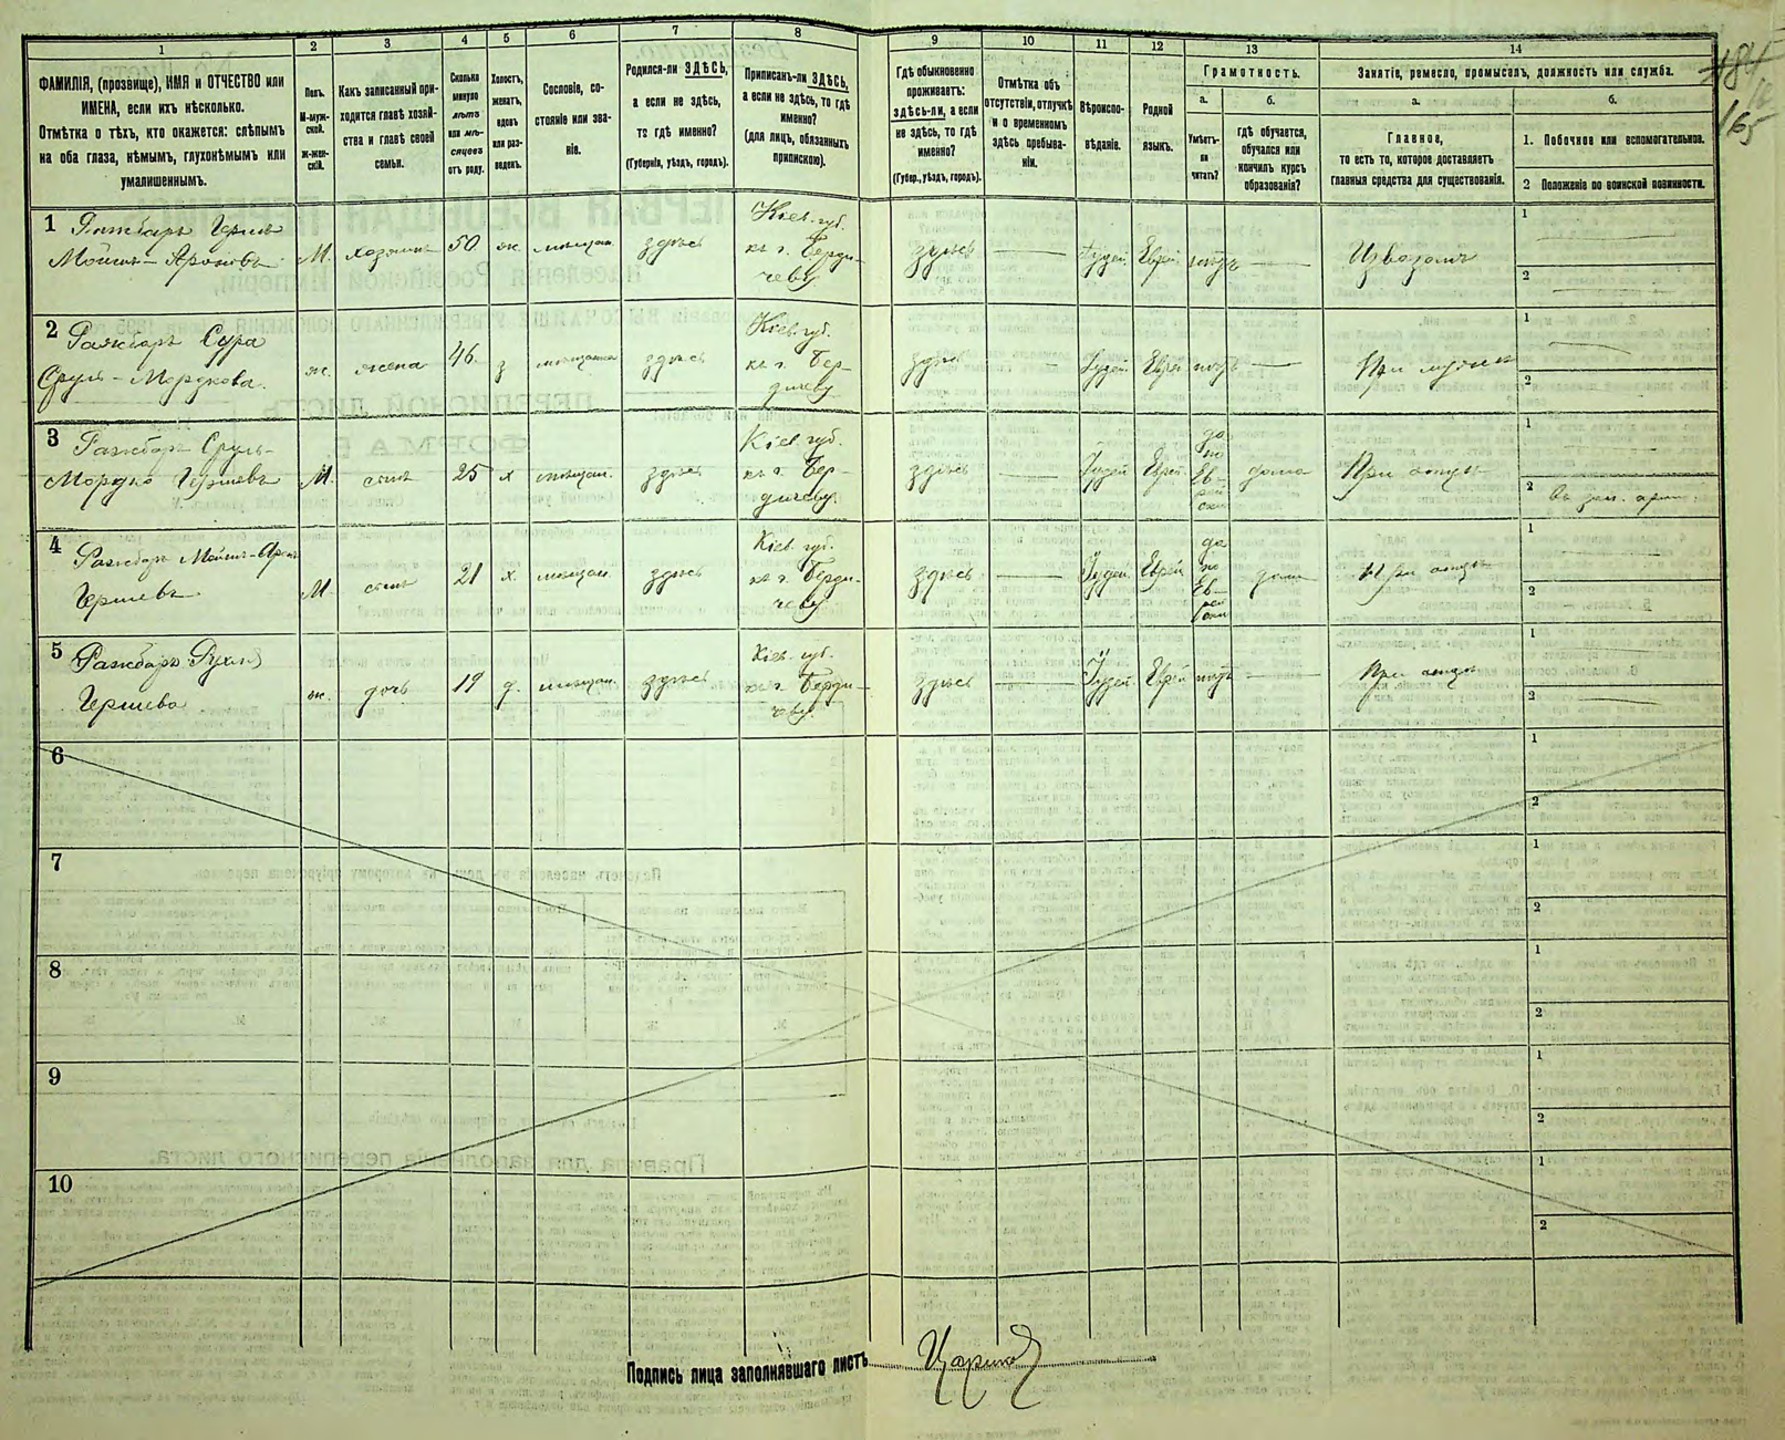 1
ФАМИЛІЯ, (прозвище), ИМЯ и ОТЧЕСТВО или
ИМЕНА, если ихъ нѣсколько.
Отмѣтка о тѣхъ, кто окажется: слѣпымъ
на оба глаза, нѣмымъ, глухонѣмымъ или
умалишеннымъ.
2
Полъ.
М-муж-
ской.
ж-жен-
скій.
3
Какъ записанный при-
ходится главѣ хозяй-
ства и главѣ своей
семьи.
4
Сколько
минуло
лѣтъ
или мѣ-
сяцевъ
отъ роду.
5
Холостъ,
женатъ,
вдовъ
или раз-
веденъ.
6
Сословіе, со-
стояніе или зва-
ніе.
7
Родился-ли ЗДѢСЬ,
а если не здѣсь,
то гдѣ именно?
(Губернія, уѣздъ, городъ).
8
Приписанъ-ли ЗДѢСЬ,
а если не здѣсь, то гдѣ
именно?
(для лицъ, обязанныхъ
припискою).
9
Гдѣ обыкновенно
проживаетъ:
здѣсь-ли, а если
не здѣсь, то гдѣ
именно?
(Губер., уѣздъ, городъ).
10
Отмѣтка объ
отсутствіи, отлучкѣ
и о временномъ
здѣсь пребыва-
ніи.
11
Вѣроиспо-
вѣданіе.
12
Родной
языкъ.
13
Грамотность.
а.
Умѣетъ-
ли
читать?
б.
гдѣ обучается,
обучался или
кончилъ курсъ
образованія?
14
Занятіе, ремесло, промыселъ, должность или служба.
а.
Главное,
то есть то, которое доставляетъ
главныя средства для существованія.
б.
1. Побочное или вспомогательное.
2 Положеніе по воинской повинности.
165
1
Мойше-Ароновъ
М.
хозяинъ
50
ж.
мѣщан.
здѣсь
Кіев. губ.
къ г. Берди-
чеву
здѣсь
Іудей.
Еврей
нѣтъ
1
2
2
Ражбаръ Сура
Сруль-Мордкова.
ж.
жена
46.
з
мѣщанка
здѣсь
Кіев. губ.
къ г. Бер-
дичеву
здѣсь
Іудей.
Еврей
нѣтъ
При мужѣ
1
2
3
Ражбаръ Сруль-
Мордко Гершевъ
М.
сынъ
25
х
мѣщан.
здѣсь
Кіев. губ.
къ г. Бер-
дичеву.
здѣсь
Іудей
Еврей.
да
по
Ев-
рей
ски
дома
При отцѣ
1
2
4
Ражбаръ Мойше-Арон
Гершевъ.
М.
сынъ
21
х.
мѣщан.
здѣсь
Кіев. губ.
къ г. Берди-
чеву
здѣсь
Іудей.
Еврей
да
по
Ев-
рей
ски
дома
При отцѣ
1
2
5
Ражбаръ Рухля
Гершева
ж.
дочь
19
д.
мѣщан.
здѣсь
Кіев. губ.
къ г. Берди-
чеву.
здѣсь
Іудей.
Еврей
нѣтъ
При отцѣ
1
2
6
1
2
7
1
2
8
1
2
9
1
2
10
1
2
Подпись лица заполнявшаго листъ